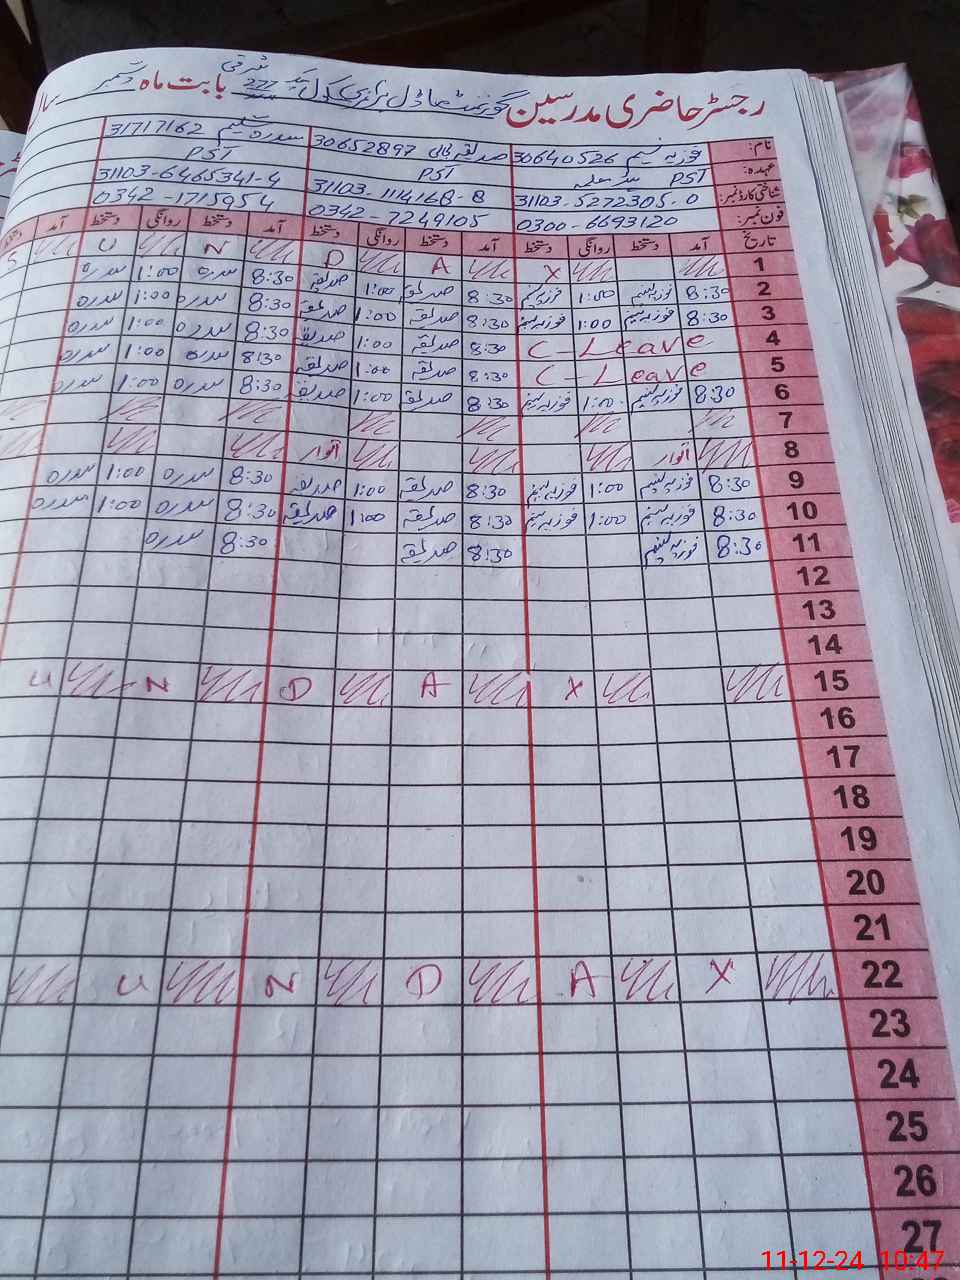 رجسٹر حاضری مدرسین گورنمنٹ ماڈل پرائمری سکول چک 277 شرقی بابت ماہ دسمبر
نام: فوزیہ نسیم 30640526 صدیقہ 30652897 سدرہ 31717162
عہدہ: PST PST PST
شناختی کارڈ نمبر: 31103-5272305-0 31103-1114168-8 31103-6465341-4
فون نمبر: 0300-6693120 0342-7249105 0342-1715954
تاریخ آمد دستخط روانگی دستخط آمد دستخط روانگی دستخط آمد دستخط روانگی دستخط آمد دستخط
1 S U N D A Y
2 8:30 فوزیہ نسیم 1:00 فوزیہ نسیم 8:30 صدیقہ 1:00 صدیقہ 8:30 سدرہ 1:00 سدرہ
3 8:30 فوزیہ نسیم 1:00 فوزیہ نسیم 8:30 صدیقہ 1:00 صدیقہ 8:30 سدرہ 1:00 سدرہ
4 C-Leave 8:30 صدیقہ 1:00 صدیقہ 8:30 سدرہ 1:00 سدرہ
5 C-Leave 8:30 صدیقہ 1:00 صدیقہ 8:30 سدرہ 1:00 سدرہ
6 8:30 فوزیہ نسیم 1:00 فوزیہ نسیم 8:30 صدیقہ 1:00 صدیقہ 8:30 سدرہ 1:00 سدرہ
7
8 اتوار اتوار
9 8:30 فوزیہ نسیم 1:00 فوزیہ نسیم 8:30 صدیقہ 1:00 صدیقہ 8:30 سدرہ 1:00 سدرہ
10 8:30 فوزیہ نسیم 1:00 فوزیہ نسیم 8:30 صدیقہ 1:00 صدیقہ 8:30 سدرہ 1:00 سدرہ
11 8:30 فوزیہ نسیم 8:30 صدیقہ 8:30 سدرہ
12
13
14
15 U N D A Y
16
17
18
19
20
21
22 U N D A Y
23
24
25
26
27
11-12-24 10:47